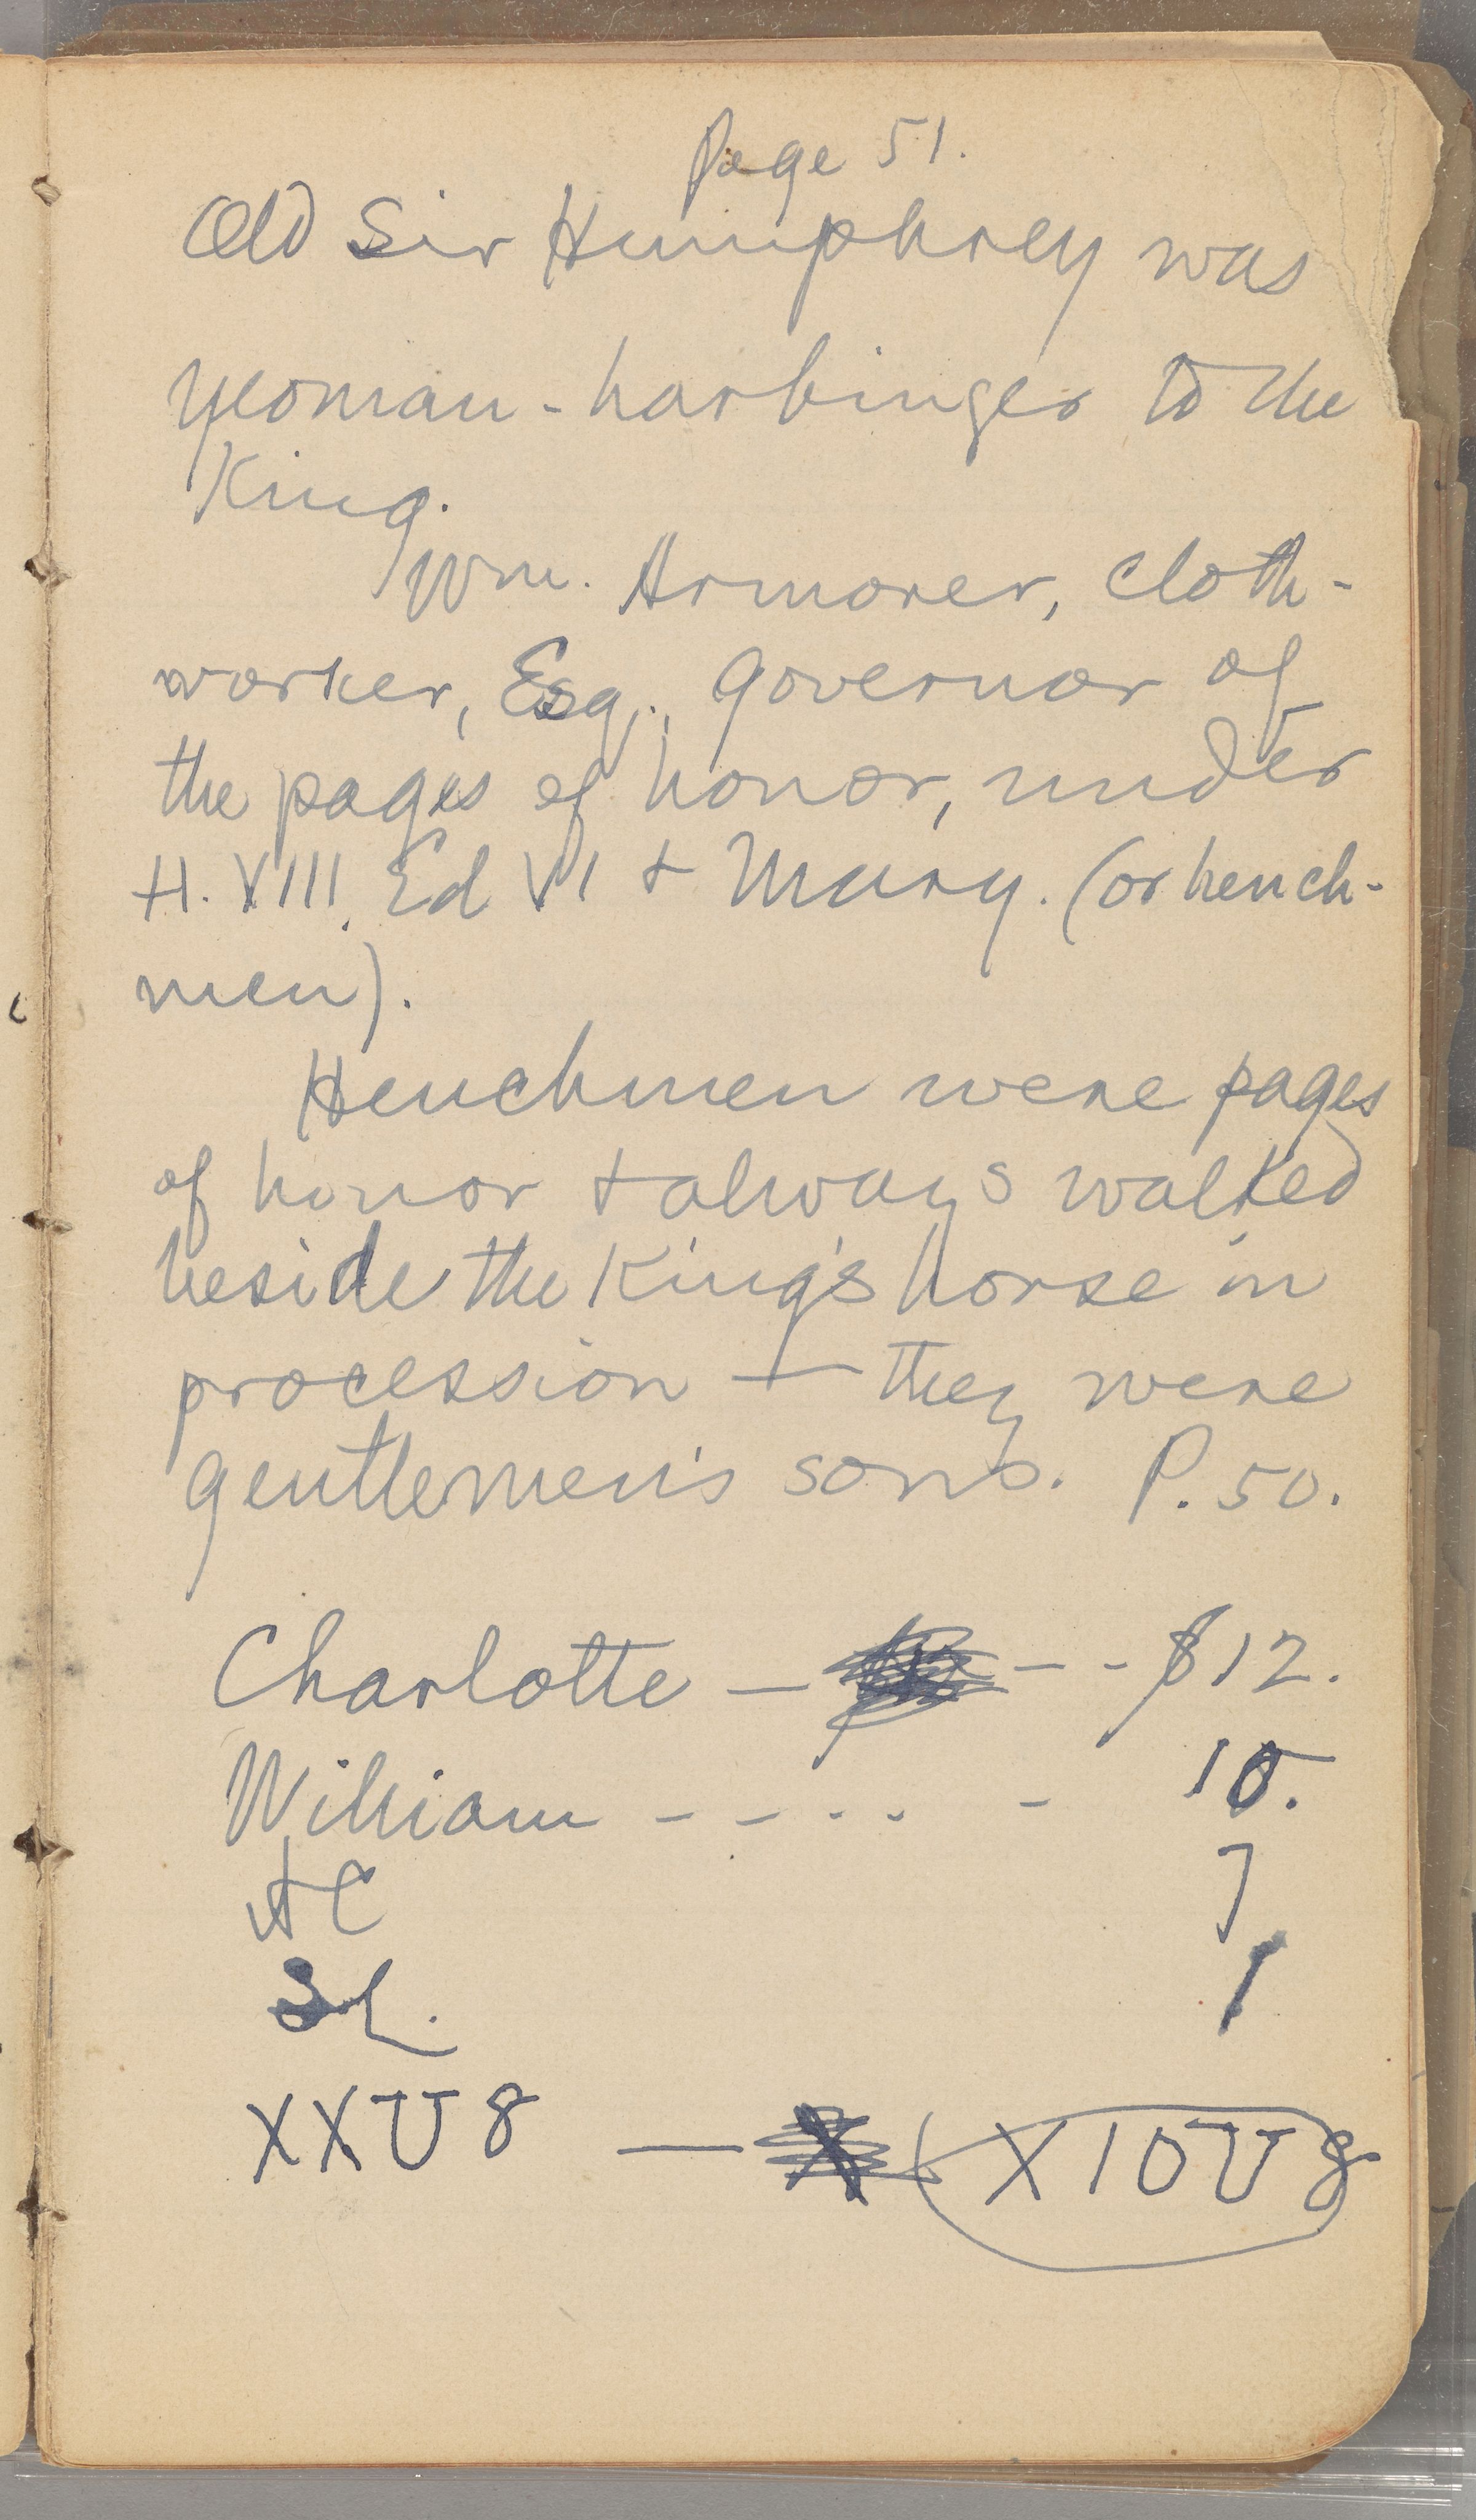 Page 51.
Old Sir Humphrey was
yeoman-harbinger to the
King.
Wm. Armorer, cloth-
worker, Esq., governor of
the pages of honor, under
H. VIII, Ed VI + Mary. (or hench-
men).
Henchmen were pages
of honor + always walked
beside the King's horse in
procession — they were
gentlemen's sons. P. 50.
Charlotte — -- $12.
William ----- - 10.
AC 7
SL. 1
XXU8 — X10U8